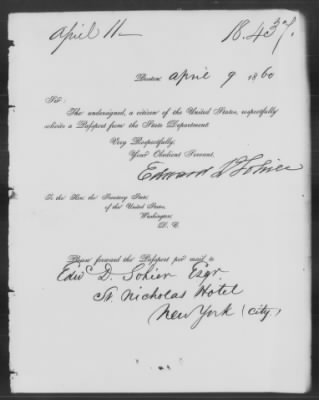 April 11
18.437.
Boston: April 9 1860
Sir:
The undersigned, a citizen of the United States, respectfully
solicits a Passport from the State Department.
Very Respectfully,
Your Obedient Servant,
Edward D Sohier
To the Hon. the Secretary State,
of the United States,
Washington,
D. C.
Please forward the Passport per mail to
Edwd D. Sohier Esqr.
St. Nicholas Hotel
New York (City.)